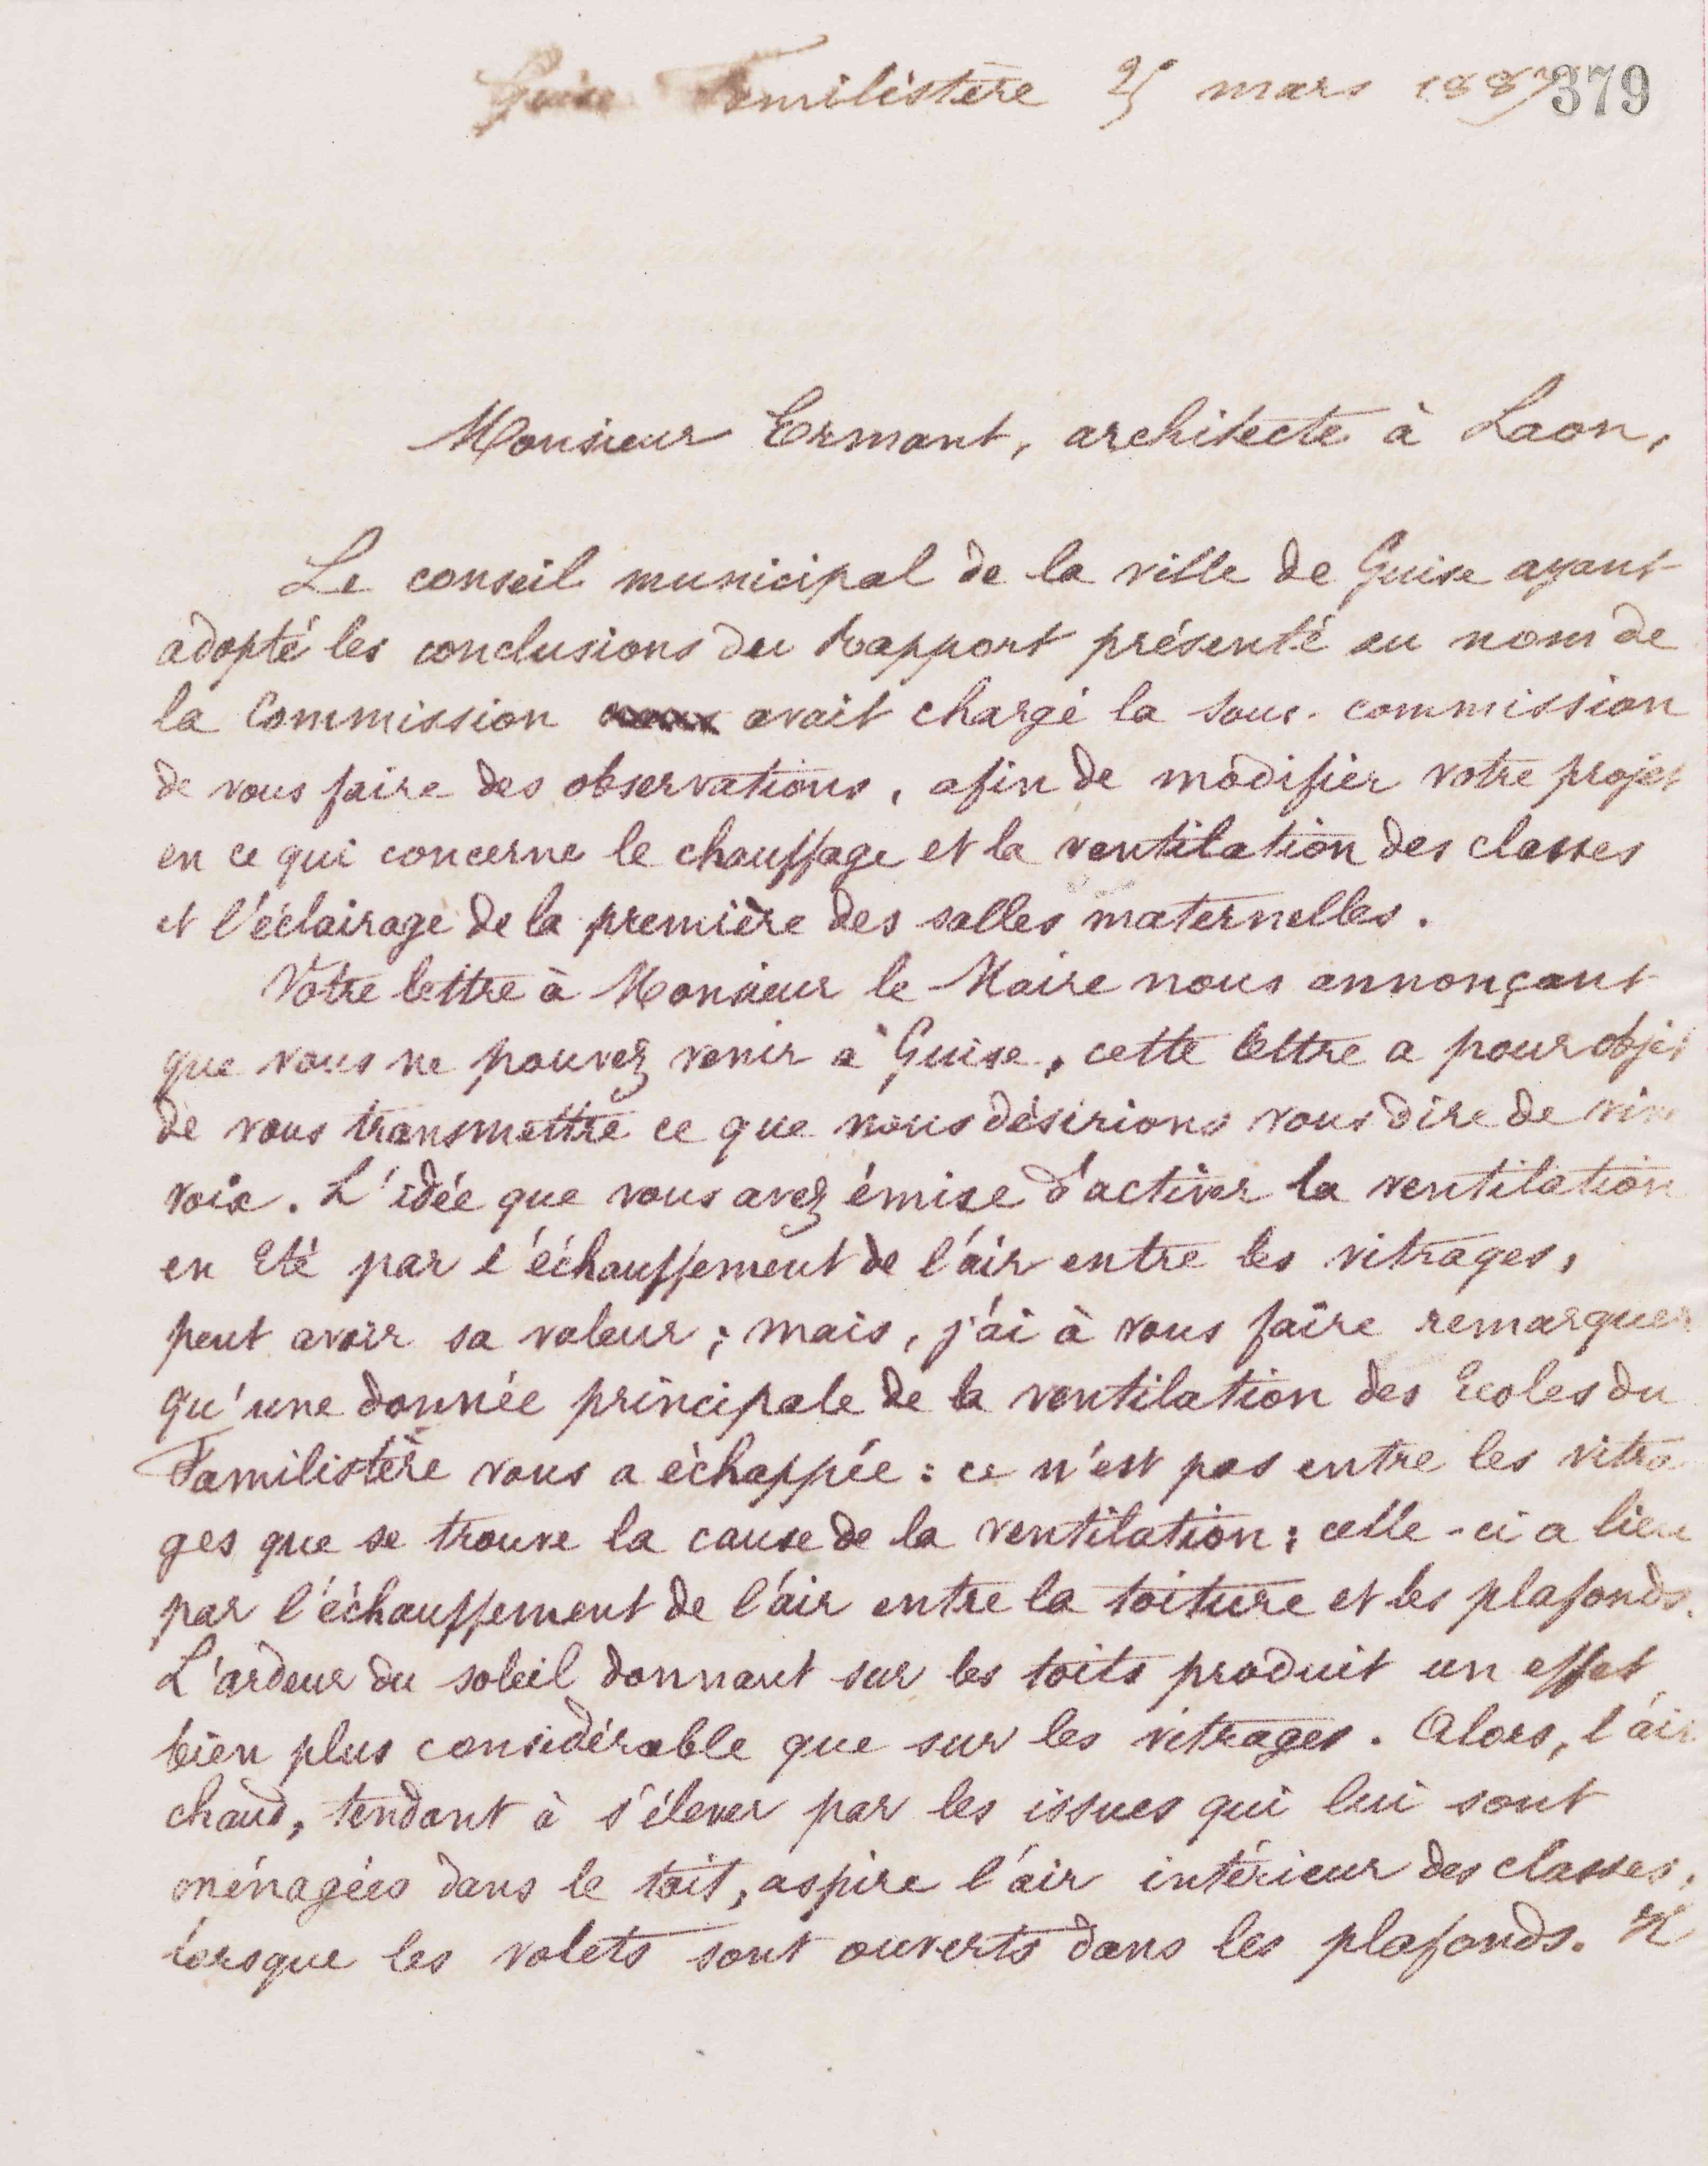 Guise Familistère 25 mars 1887
379
Monsieur Ermant, architecte à Laon,
Le conseil municipal de la ville de Guise ayant
adopté les conclusions du Rapport présenté au nom de
la Commission avait chargé la sous-commission
de vous faire des observations, afin de modifier votre projet
en ce qui concerne le chauffage et la ventilation des classes
et l'éclairage de la première des salles maternelles.
Votre lettre à Monsieur le Maire nous annonçant
que vous ne pouvez venir à Guise, cette lettre a pour objet
de vous transmettre ce que nous désirions vous dire de vive
voix. L'idée que vous avez émise d'activer la ventilation
en Eté par l'échauffement de l'air entre les vitrages,
peut avoir sa valeur ; mais, j'ai à vous faire remarquer
qu'une donnée principale de la ventilation des Ecoles du
Familistère vous a échappée : ce n'est pas entre les vitra
ges que se trouve la cause de la ventilation ; celle-ci a lieu
par l'échauffement de l'air entre la toiture et les plafonds.
L'ardeur du soleil donnant sur les toits produit un effet
bien plus considérable que sur les vitrages. Alors, l'air
chaud, tendant à s'élever par les issues qui lui sont
ménagées dans le toit, aspire l'air intérieur des classes,
lorsque les volets sont ouverts dans les plafonds. Il